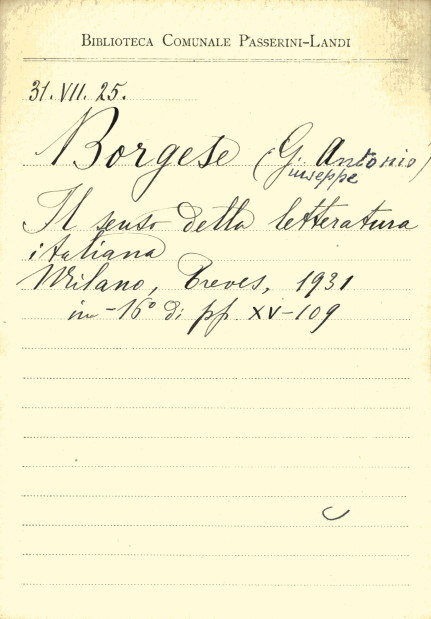 BIBLIOTECA COMUNALE PASSERINI-LANDI
31. VII. 25.
Borgese (G. Antonio)
iuseppe
Il senso della letteratura
italiana
Milano, Treves, 1931
in-16° di pp XV-109